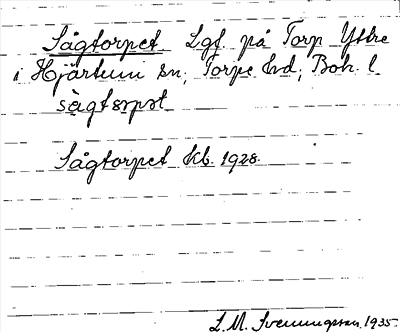 Sågtorpet Lgf på Torp Yttre
i Hjärtum sn, Torpe hd, Boh. l.
sågtorpət
Sågtorpet kb. 1928.
L. M. Svenungsson. 1935.